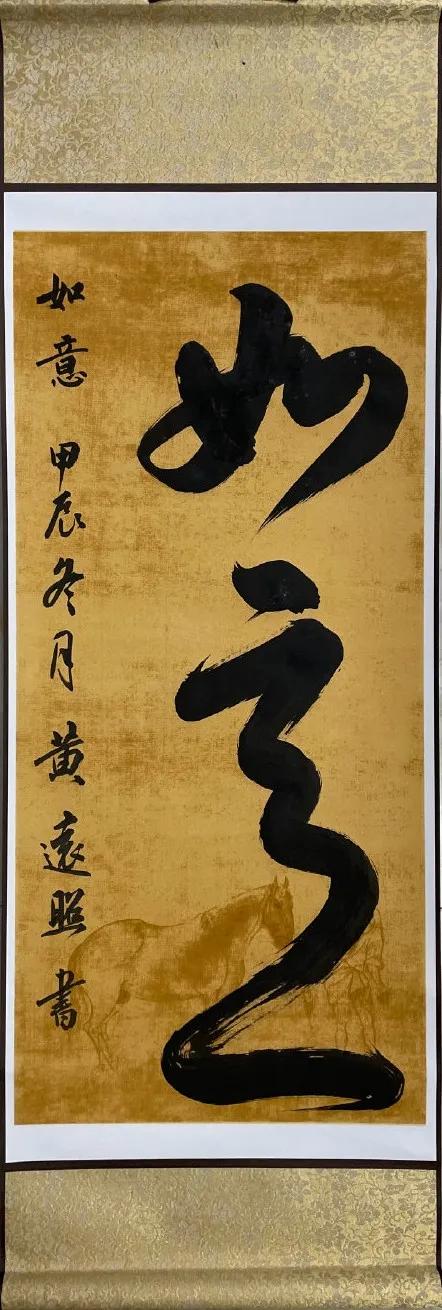 如意
如意 甲辰冬月 黄遠照書